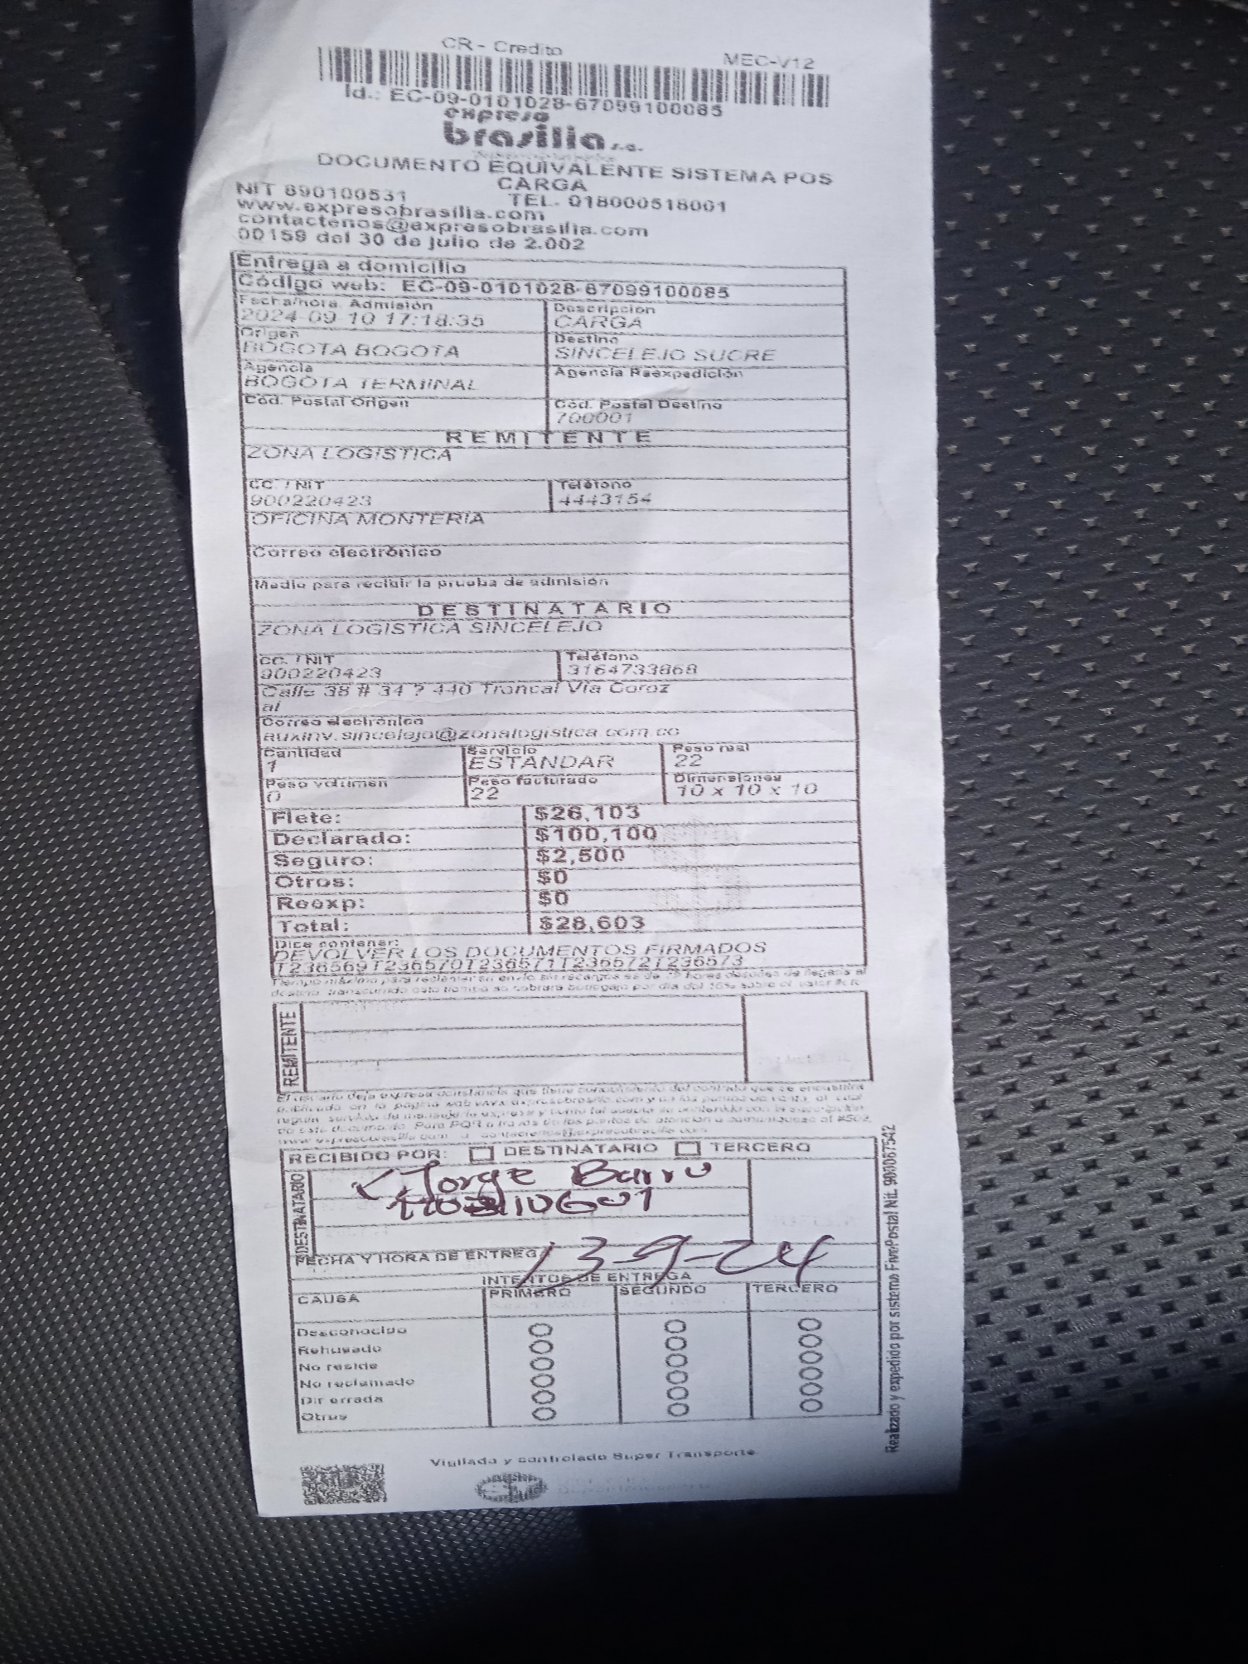 CR - Credito
MEC-V12
Id.: EC-09-0101028-67099100085
expreso
brasilia s.a.
DOCUMENTO EQUIVALENTE SISTEMA POS
CARGA
NIT 890100531
TEL. 018000518001
www.expresobrasilia.com
contactenos@expresobrasilia.com
00159 del 30 de julio de 2.002
Entrega a domicilio
Código web: EC-09-0101028-67099100085
Fecha/hora Admisión
2024-09-10 17:18:35
Descripcion
CARGA
Origen
BOGOTA BOGOTA
Destino
SINCELEJO SUCRE
Agencia
BOGOTA TERMINAL
Agencia Reexpedición
Cód. Postal Origen
Cód. Postal Destino
700001
REMITENTE
ZONA LOGISTICA
CC. / NIT
900220423
Teléfono
4443154
OFICINA MONTERIA
Correo electrónico
Medio para recibir la prueba de admisión
DESTINATARIO
ZONA LOGISTICA SINCELEJO
CC. / NIT
900220423
Teléfono
3164733868
Calle 38 # 34 ? 440 Troncal Via Coroz
al
Correo electrónico
auxinv.sincelejo@zonalogistica.com.co
Cantidad
1
Servicio
ESTANDAR
Peso real
22
Peso volumen
0
Peso facturado
22
Dimensiones
10 x 10 x 10
Flete: $26,103
Declarado: $100,100
Seguro: $2,500
Otros: $0
Reexp: $0
Total: $28,603
Dice contener:
DEVOLVER LOS DOCUMENTOS FIRMADOS
T236569T236570T236571T236572T236573
REMITENTE
RECIBIDO POR: DESTINATARIO TERCERO
DESTINATARIO
Jorge Barru
FECHA Y HORA DE ENTREGA
13-9-24
INTENTOS DE ENTREGA
CAUSA PRIMERO SEGUNDO TERCERO
Desconocido
Rehusado
No reside
No reclamado
Dir errada
Otros
Vigilado y controlado Super Transporte
Realizado y expedido por sistema FivePostal Nit. 900067542